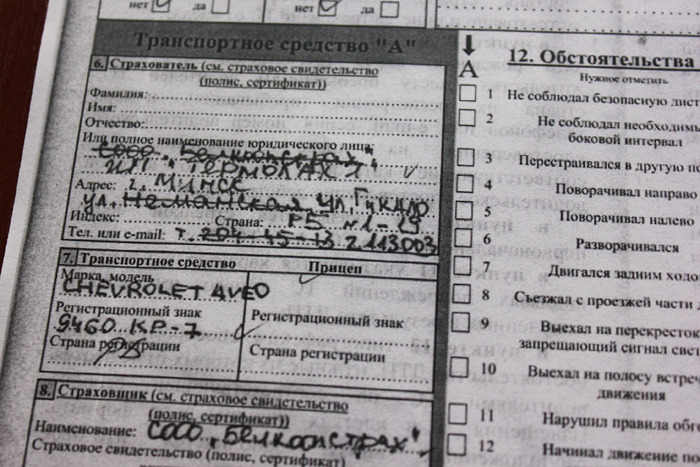 нет да
нет да
Транспортное средство "А"
6. Страхователь (см. страховое свидетельство
(полис, сертификат))
Фамилия:
Имя:
Отчество:
Или полное наименование юридического лица
СООО "Белкоопстрах"
ИП
Адрес: г. МИНСК
ул. Неманская ул. Гикало
Индекс: Страна: РБ
Тел. или e-mail: т.
7. Транспортное средство
Марка, модель Прицеп
CHEVROLET AVEO
Регистрационный знак Регистрационный знак
9460 КР-7
Страна регистрации Страна регистрации
РБ
8. Страховщик (см. страховое свидетельство
(полис, сертификат))
Наименование: СООО "Белкоопстрах"
Страховое свидетельство (полис, сертификат)
А
12. Обстоятельства
Нужное отметить
1 Не соблюдал безопасную дист
2 Не соблюдал необходим
боковой интервал
3 Перестраивался в другую по
4 Поворачивал направо
5 Поворачивал налево
6 Разворачивался
7 Двигался задним ходо
8 Съезжал с проезжей части
9 Выехал на перекресток
запрещающий сигнал све
10 Выехал на полосу встре
движения
11 Нарушил правила обг
12 Начинал движение